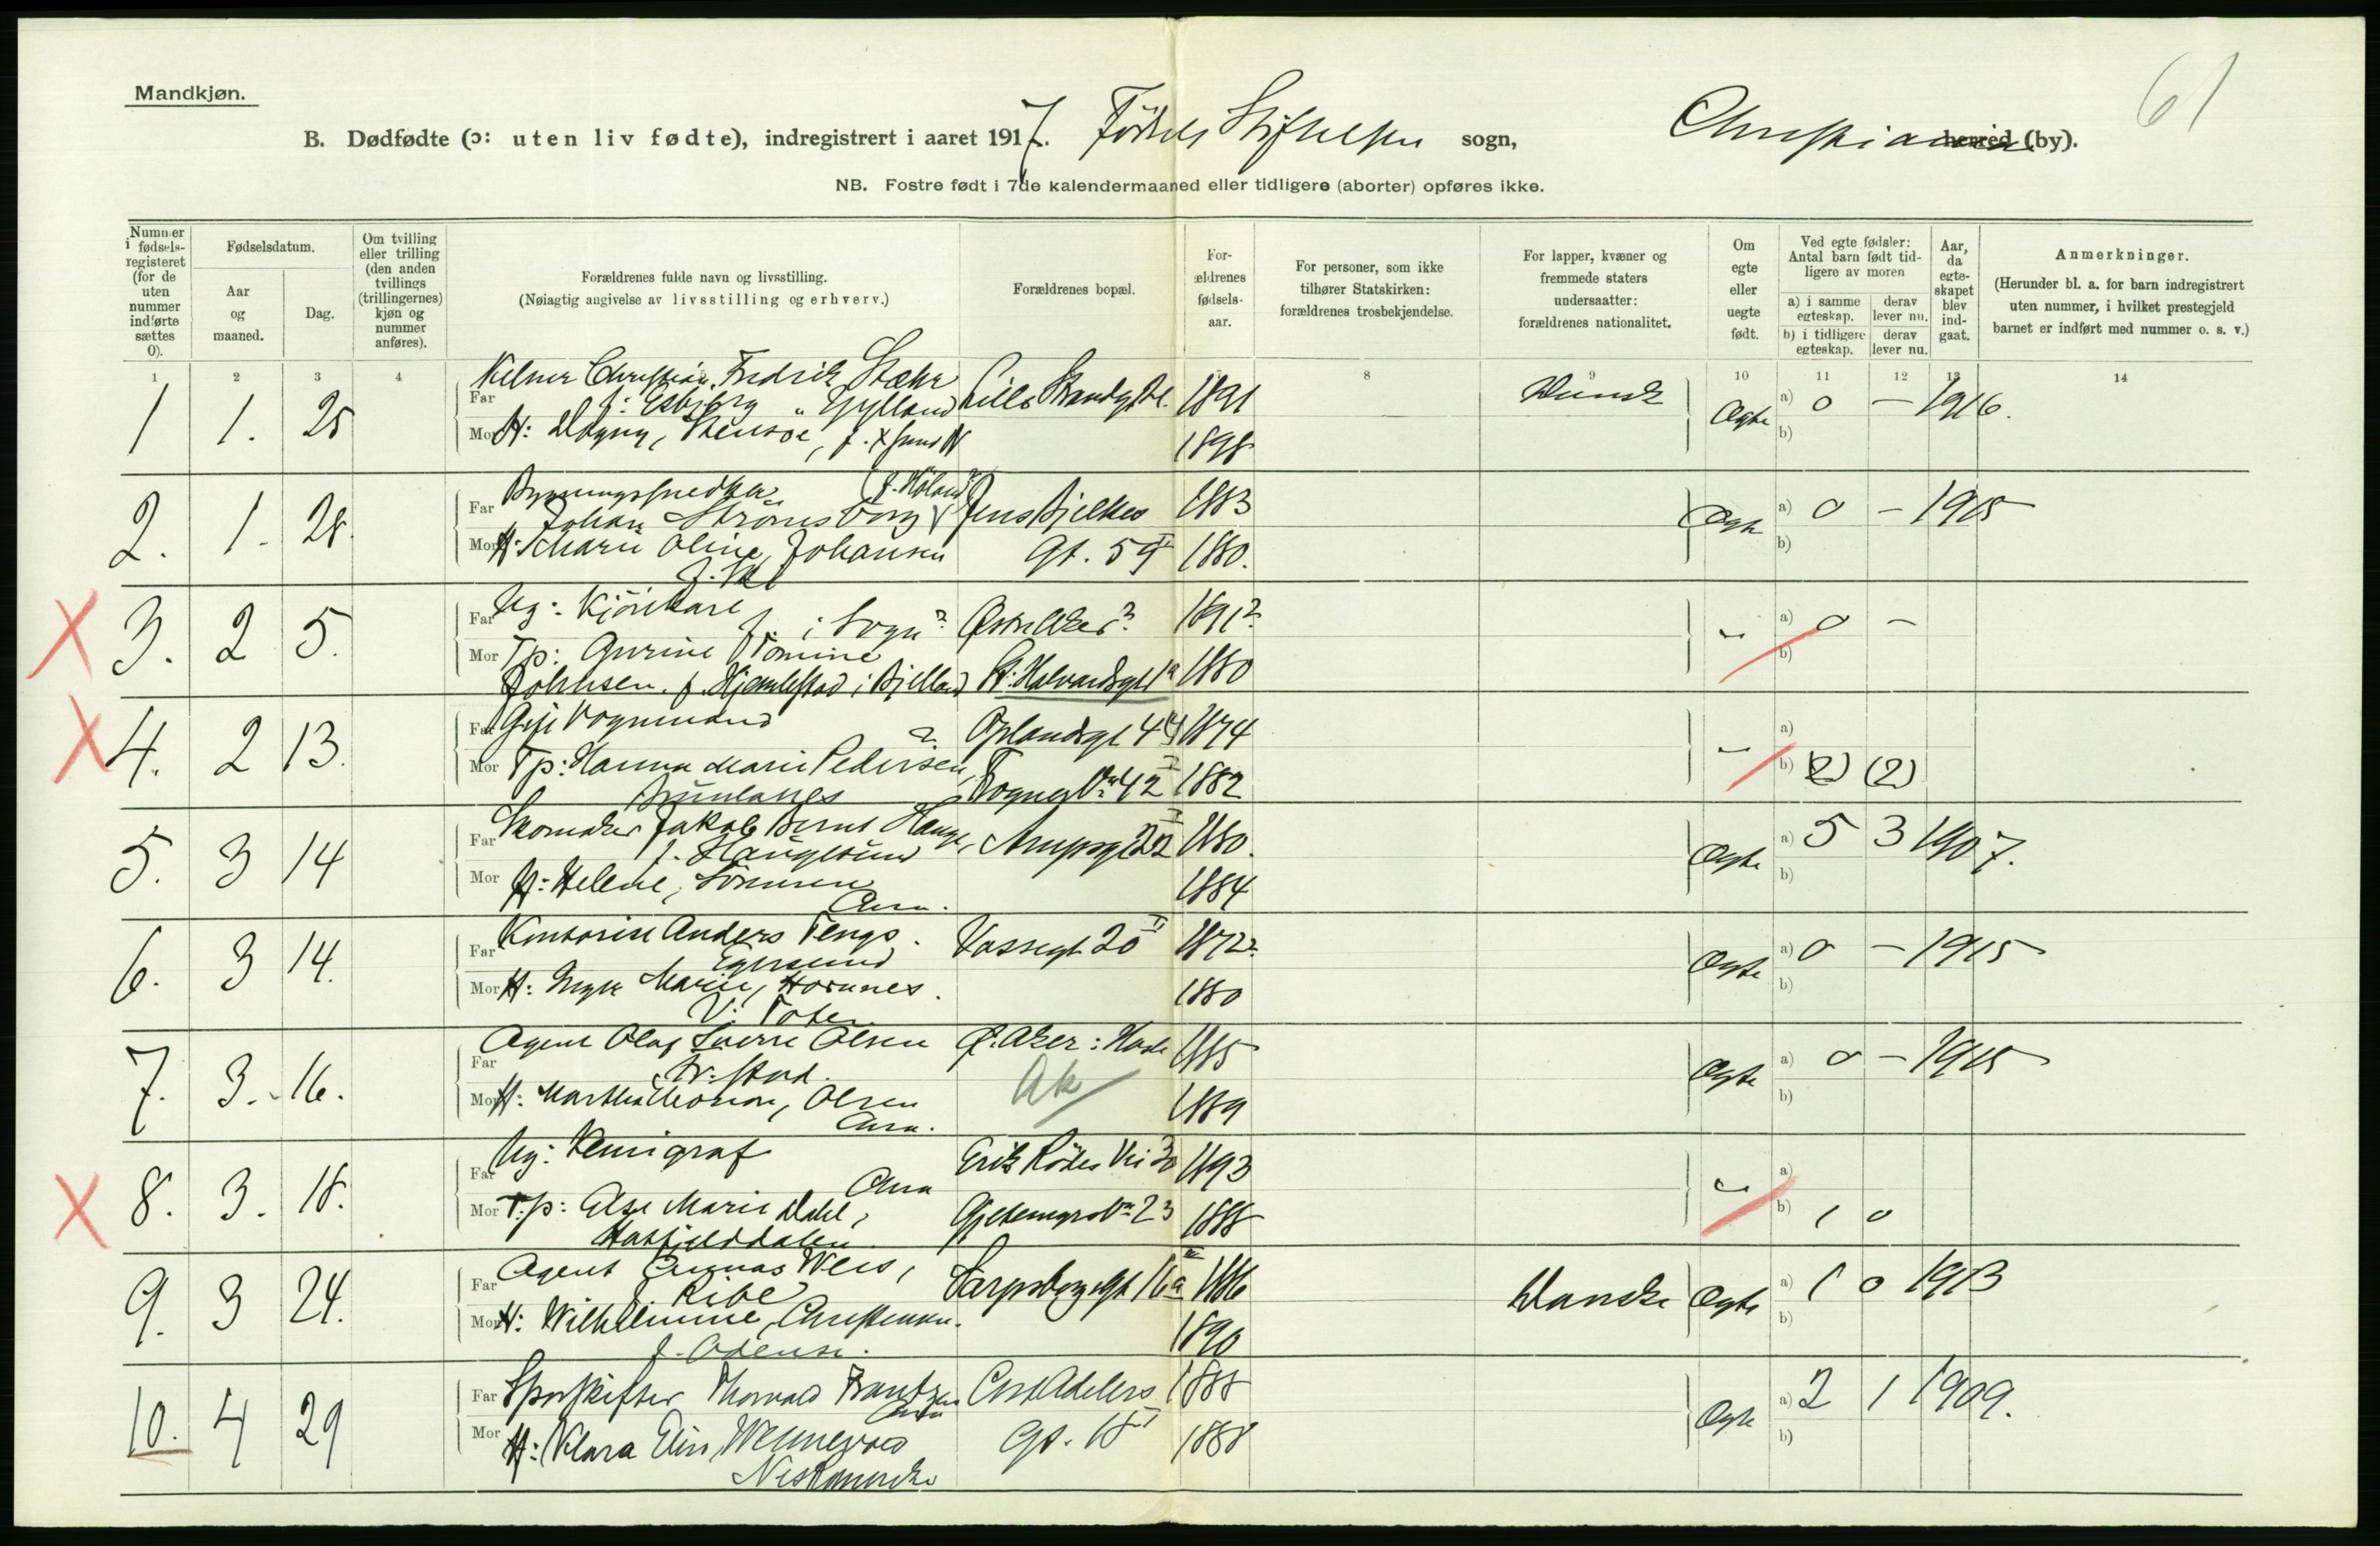 61
Mandkjøn.
B. Dødfødte (ɔ: uten liv fødte), indregistrert i aaret 1917. Fødsels Stiftelsen sogn, Christiania herred (by).
NB. Fostre født i 7de kalendermaaned eller tidligere (aborter) opføres ikke.
Nummer i fødsels-registeret (for de uten nummer indførte sættes 0).
Fødselsdatum.
Aar og maaned.
Dag.
Om tvilling eller trilling (den anden tvillings (trillingernes) kjøn og nummer anføres).
Forældrenes fulde navn og livsstilling.
(Nøiagtig angivelse av livsstilling og erhverv.)
Forældrenes bopæl.
For-ældrenes fødsels-aar.
For personer, som ikke tilhører Statskirken: forældrenes trosbekjendelse.
For lapper, kvæner og fremmede staters undersaatter: forældrenes nationalitet.
Om egte eller uegte født.
Ved egte fødsler: Antal barn født tid-ligere av moren
a) i samme egteskap. derav lever nu.
b) i tidligere egteskap. derav lever nu.
Aar, da egte-skapet blev ind-gaat.
Anmerkninger.
(Herunder bl. a. for barn indregistrert uten nummer, i hvilket prestegjeld barnet er indført med nummer o. s. v.)
1 2 3 4 8 9 10 11 12 13 14
1 1. 25 Far Kelner Christian Fredrik Stæhr Lille Strandgt 1891 Dansk Ægte a) 0 - 1916.
f: Esbjerg Jylland
Mor H: Dagny, f. 1898 b)
2. 1. 28. Far Bygningssnedker (f. Høland)
Johan Strømsborg Jens Bjelkes 1883 Ægte a) 0 - 1915
Mor H: Marie Oline Johansen Gt. 59 1880. b)
X 3. 2 5. Far Ug: Kjørekarl
f. i Sogn? Østre Aker? 1891? a) 0 -
Mor Tp: Gurine Tomine b)
Johnsen. f. i Bjelland St. Halvardsgt 1a 1880
X 4. 2 13. Far Gift Vognmand ? Oplandsgt 1874 a)
Mor Tp: Hanna Marie Pedersen, Frognerv. 42 1882 b) (2) (2)
Brunlanes
5. 3 14 Far Skomaker Jakob Bernt Hauge, Arupsgt 22 1880. Ægte a) 5 3 1907.
f. Haugesund
Mor H: Helene, Sørensen 1884 b)
Chra.
6. 3 14. Far Kontorist Anders Tengs. Vossegt 20 1872? Ægte a) 0 - 1915
Egersund
Mor H: Marie, Hornnes. 1880 b)
V: Toten
7. 3. 16. Far Agent Olaf Sverre Olsen Ø. Aker: 1885 Ægte a) 0 - 1915
Ak
Mor H: Martha, Olsen 1889 b)
Chra.
X 8. 3. 18. Far Ug: Kemigraf Erik Vei 30 1893 a)
Chra
Mor T.p: Else Marie Dahl, 23 1888 b) 1 0
Hatfjelddalen
9. 3 24. Far Agent Weis, Sarpsborggt 16a 1886 Danske Ægte a) 1 0 1913
f. Ribe
Mor H: Wilhelmine, Christensen. 1890 b)
f. Odense.
10. 4 29 Far Sporskifter Thorvald Frantzen Cort Adelers 1888 Ægte a) 2 1 1909.
Chra
Mor H: Klara Elin, Gt. 18 1888 b)